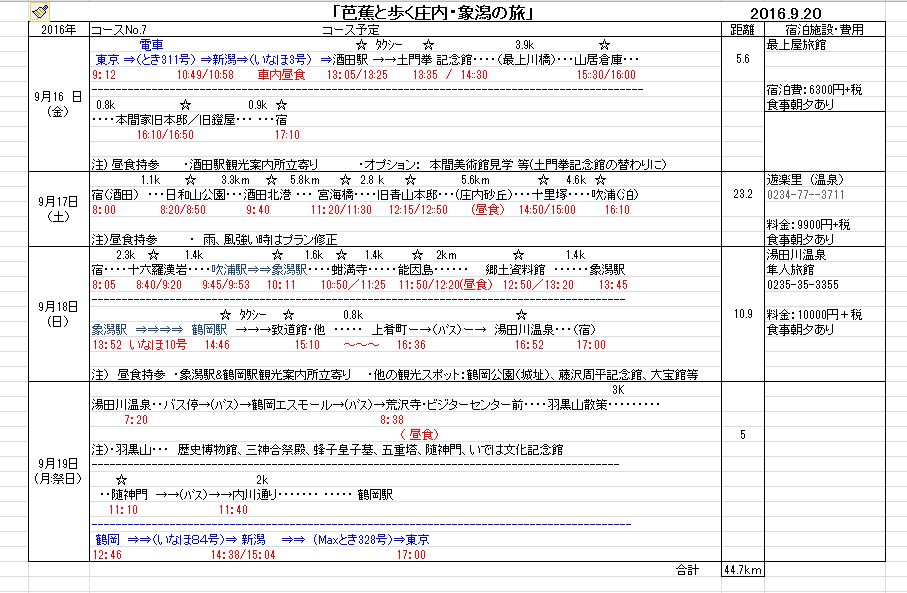 「芭蕉と歩く庄内・象潟の旅」 2016.9.20
2016年 コースNo.7 コース予定 距離 宿泊施設・費用
電車 ☆ ﾀｸｼー ☆ 3.9k ☆ 最上屋旅館
東京 ⇒(とき311号) ⇒新潟⇒(いなほ3号) ⇒酒田駅 →→土門拳 記念館‥‥(最上川橋)‥‥山居倉庫‥‥ 5.6
9:12 10:49/10:58 車内昼食 13:05/13:25 13:35 / 14:30 15:30/16:00
宿泊費:6300円+税
9月16 日
(金)
0.8k ☆ 0.9k ☆ 食事朝夕あり
‥‥本間家旧本邸／旧鐙屋‥‥ ‥‥宿
16:10/16:50 17:10
注) 昼食持参 ・酒田駅観光案内所立寄り ・オプション: 本間美術館見学 等(土門拳記念館の替わりに)
1.1k ☆ 3.3km ☆ 5.8km ☆ 2.8 k ☆ 5.6km ☆ 4.6k ☆ 遊楽里 (温泉)
9月17日
(土)
宿(酒田) ‥‥日和山公園‥‥酒田北港 ‥‥ 宮海橋‥‥旧青山本邸‥‥(庄内砂丘)‥‥十里塚‥‥吹浦(泊) 23.2 0234-77--3711
8:00 8:20/8:50 9:40 11:20/11:30 12:15/12:50 (昼食) 14:50/15:00 16:10
料金:9900円+税
注)昼食持参 ・ 雨、風強い時はプラン修正 食事朝夕あり
2.3k ☆ 1.4k ☆ 1.6k ☆ 1.4k ☆ 2km ☆ 1.4k 湯田川温泉
宿‥‥十六羅漢岩‥‥吹浦駅⇒⇒象潟駅‥‥蚶満寺‥‥能因島‥‥ 郷土資料館 ‥‥‥象潟駅 隼人旅館
8:05 8:40/9:20 9:45/9:53 10:11 10:50／11:25 11:50/12:20(昼食) 12:50／13:20 13:45 0235-35-3355
9月18日
(日)
☆ ﾀｸｼー ☆ 0.8k ☆ 10.9 料金:10000円＋税
象潟駅 ⇒⇒⇒⇒ 鶴岡駅 →→→致道館・他 ‥‥‥ 上肴町ー→(バス)ー→ 湯田川温泉‥‥(宿) 食事朝夕あり
13:52 いなほ10号 14:46 15:10 ～～～ 16:36 16:52 17:00
注) 昼食持参 ・象潟駅&鶴岡駅観光案内所立寄り ・他の観光スポット:鶴岡公園(城址)、藤沢周平記念館、大宝館等
3K
湯田川温泉‥‥バス停→(バス)→鶴岡エスモール→(バス)→荒沢寺・ビジターセンター前‥‥羽黒山散策‥‥‥‥‥
7:20 8:38
(昼食) 5
注)・羽黒山‥‥ 歴史博物館、三神合祭殿、蜂子皇子墓、五重塔、随神門、いでは文化記念館
9月19日
(月:祭日)
☆ 2k
‥‥随神門 →→(バス)→→内川通り‥‥‥‥ ‥‥‥ 鶴岡駅
11:10 11:40
鶴岡 ⇒⇒(いなほ84号)⇒ 新潟 ⇒⇒ (Maxとき328号)⇒東京
12:46 14:38/15:04 17:00
合計 44.7km